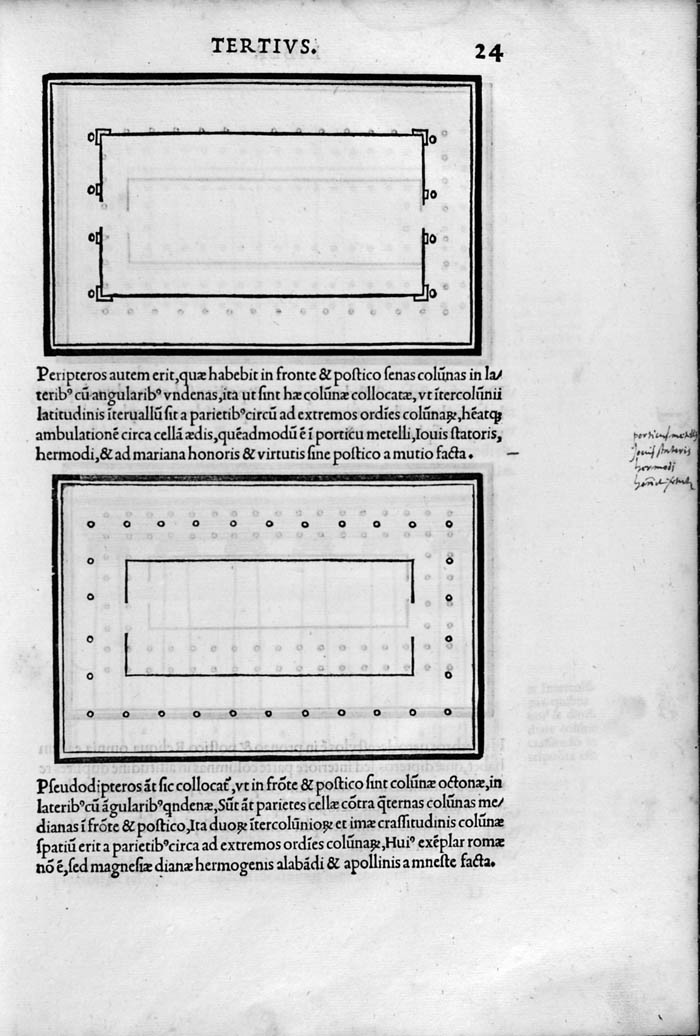 TERTIVS.
24
Peripteros autem erit,quæ habebit in fronte & postico senas colũnas in la/
teribꝰ cũ angularibꝰ vndenas,ita ut sint hæ colũnæ collocatæ, vt ĩtercolũnii
latitudinis ĩteruallũ sit a parietibꝰ circũ ad extremos ordĩes colũnaꝝ, hẽatqꝫ
ambulationẽ circa cellã ædis, quẽadmodũ ẽ ĩ porticu metelli, Iouis statoris,
hermodi, & ad mariana honoris & virtutis sine postico a mutio facta.
porticus metelli
Jouis statoris
hermodi
Pseudodipteros ãt sic collocat᷑, vt in frõte & postico sint colũnæ octonæ, in
lateribꝰ cũ ãgularibꝰ qndenæ, Sũt ãt parietes cellæ cõtra q̃ternas colũnas me/
dianas ĩ frõte & postico, Ita duoꝝ ĩtercolũnioꝝ et imæ crassitudinis colũnæ
spatiũ erit a parietibꝰ circa ad extremos ordĩes colũnaꝝ, Huiꝰ exẽplar romæ
nõ ẽ, sed magnesiæ dianæ hermogenis alabãdi & apollinis a mneste facta.